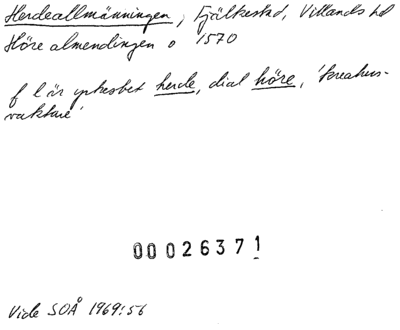 Herdeallmänningen, Fjälkestad, Villands hd
Höre almendingen o 1570
f l är yrkesbet herde, dial höre, 'kreaturs-
vaktare'
00026371
Vide SOÅ 1969:56